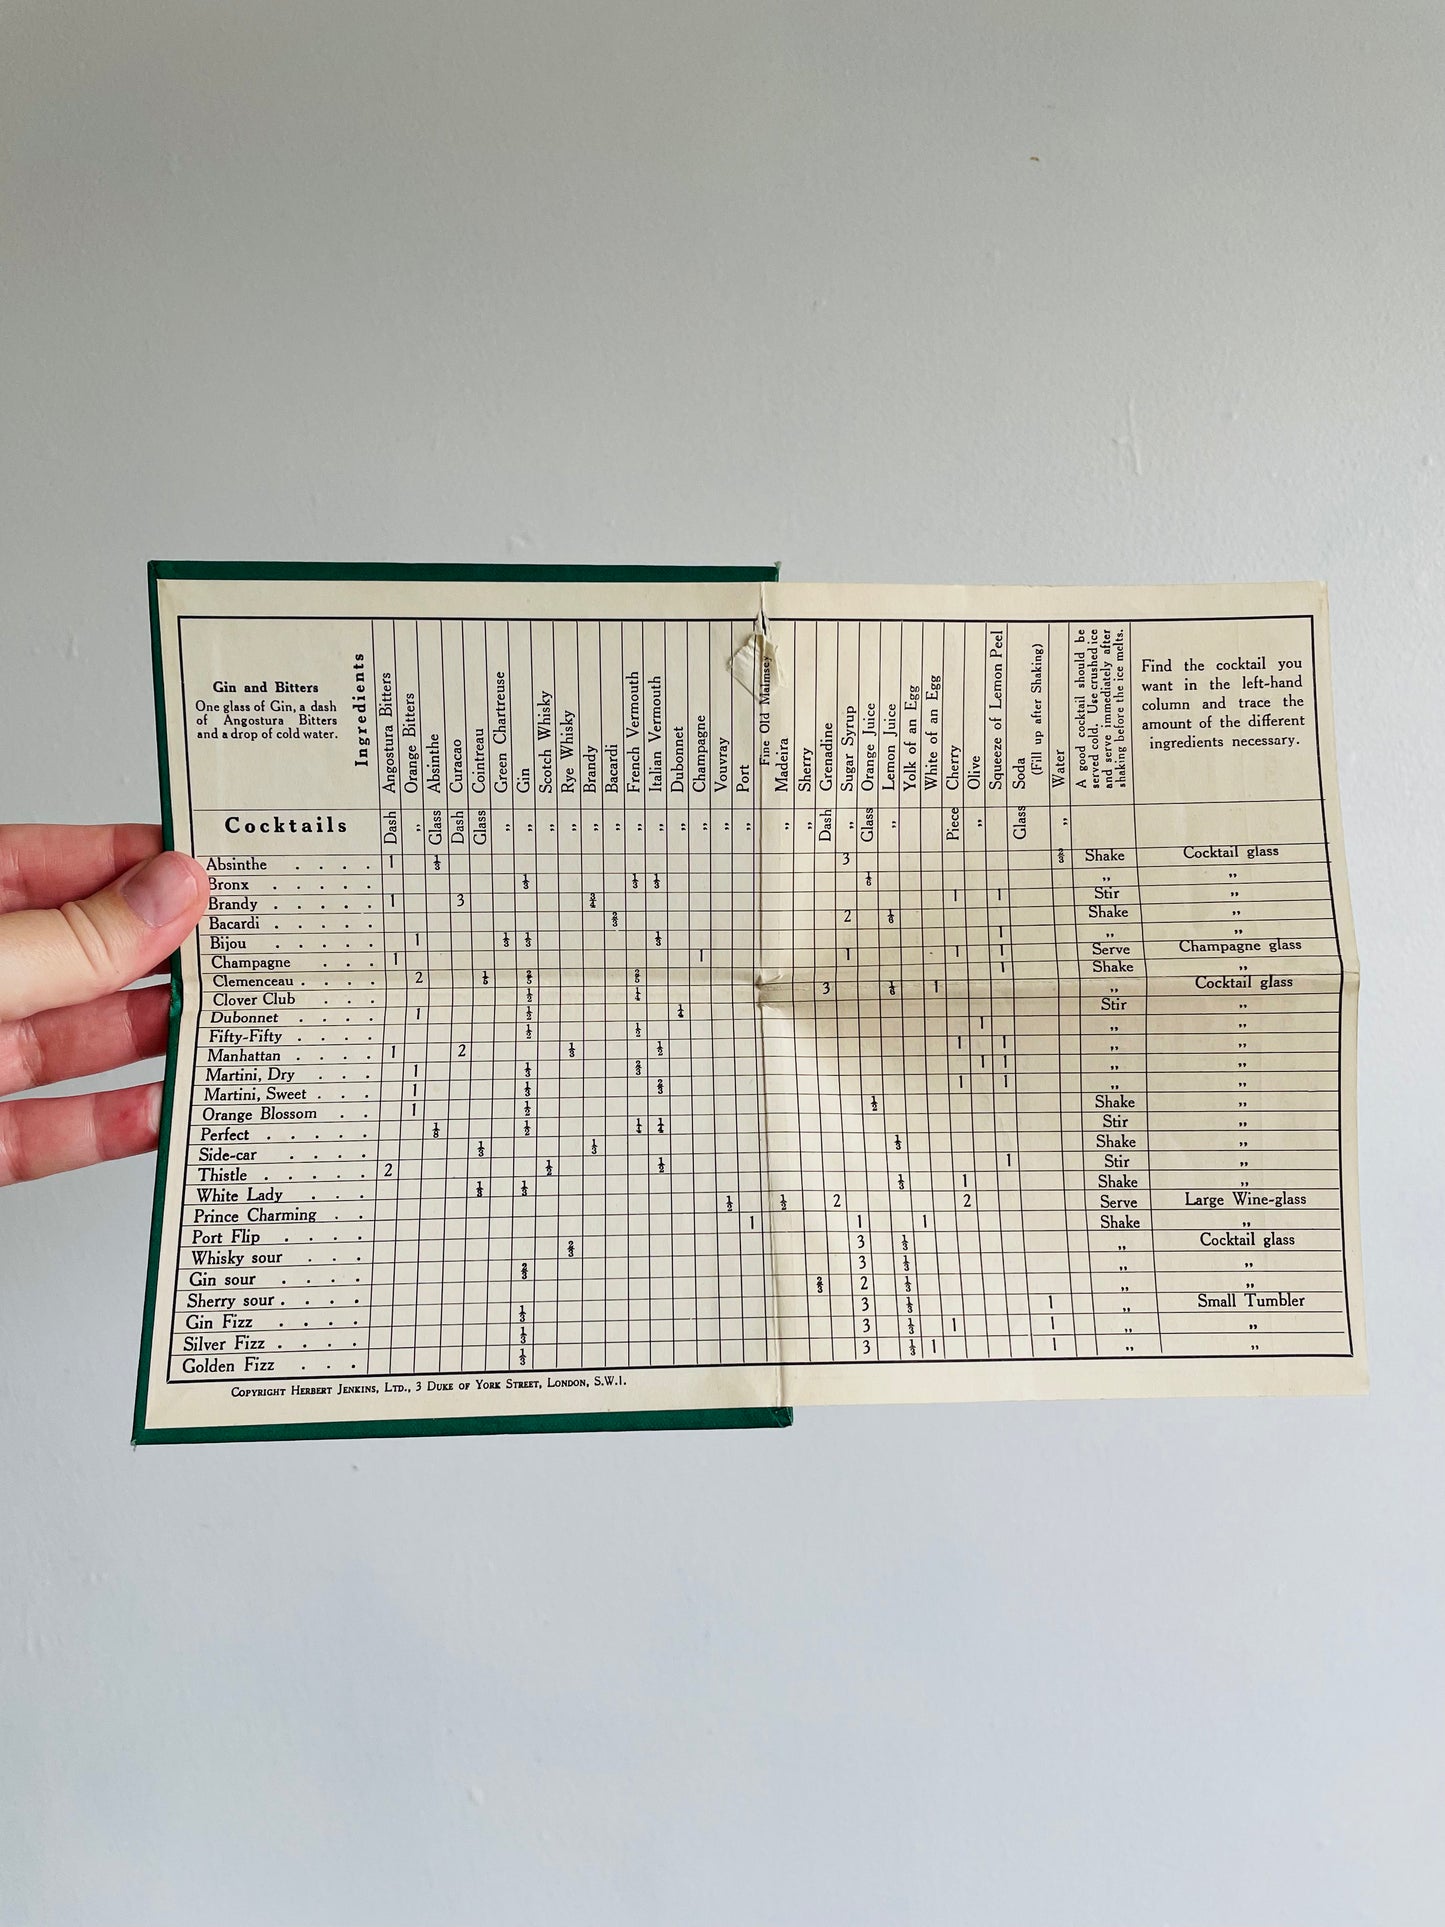 Gin and Bitters
One glass of Gin, a dash
of Angostura Bitters
and a drop of cold water.
Ingredients
Angostura Bitters
Orange Bitters
Absinthe
Curacao
Cointreau
Green Chartreuse
Gin
Scotch Whisky
Rye Whisky
Brandy
Bacardi
French Vermouth
Italian Vermouth
Dubonnet
Champagne
Vouvray
Port
Fine Old Malmsey
Madeira
Sherry
Grenadine
Sugar Syrup
Orange Juice
Lemon Juice
Yolk of an Egg
White of an Egg
Cherry
Olive
Squeeze of Lemon Peel
Soda
(Fill up after Shaking)
Water
A good cocktail should be
served cold. Use crushed ice
and serve immediately after
shaking before the ice melts.
Find the cocktail you
want in the left-hand
column and trace the
amount of the different
ingredients necessary.
Cocktails Dash ,, Glass Dash Glass ,, ,, ,, ,, ,, ,, ,, ,, ,, ,, ,, ,, ,, ,, Dash ,, Glass ,, Piece ,, Glass ,,
Absinthe . . . . 1 ⅓ 3 ⅔ Shake Cocktail glass
Bronx . . . . . ⅓ ⅓ ⅓ ,, ,,
Brandy . . . . . 1 3 ¾ 1 1 Stir ,,
Bacardi . . . . . ⅔ 2 ⅓ Shake ,,
Bijou . . . . . 1 ⅓ ⅓ ⅓ 1 ,, ,,
Champagne . . . 1 1 1 1 1 Serve Champagne glass
Clemenceau . . . . 2 ⅕ ⅖ ⅖ 1 Shake ,,
Clover Club . . . ½ ¼ 3 1 ,, Cocktail glass
Dubonnet . . . . 1 ½ ¼ Stir ,,
Fifty-Fifty . . . . ½ ½ 1 ,, ,,
Manhattan . . . . 1 2 ⅓ ½ 1 1 ,, ,,
Martini, Dry . . . 1 ⅓ ⅔ 1 1 ,, ,,
Martini, Sweet . . . 1 ⅓ ⅔ 1 1 ,, ,,
Orange Blossom . . 1 ½ ½ Shake ,,
Perfect . . . . . ⅛ ½ ¼ ¼ Stir ,,
Side-car . . . . ⅓ ⅓ ⅓ Shake ,,
Thistle . . . . . 2 ½ ½ 1 Stir ,,
White Lady . . . ⅓ ⅓ ⅓ 1 Shake ,,
Prince Charming . . ½ ½ 2 2 Serve Large Wine-glass
Port Flip . . . . 1 1 1 Shake ,,
Whisky sour . . . ⅔ 3 ⅓ ,, Cocktail glass
Gin sour . . . . ⅔ 3 ⅓ ,, ,,
Sherry sour . . . . ⅔ 2 ⅓ ,, ,,
Gin Fizz . . . . ⅓ 3 ⅓ 1 ,, Small Tumbler
Silver Fizz . . . . ⅓ 3 ⅓ 1 1 ,, ,,
Golden Fizz . . . ⅓ 3 ⅓ 1 1 ,, ,,
Copyright Herbert Jenkins, Ltd., 3 Duke of York Street, London, S.W.1.